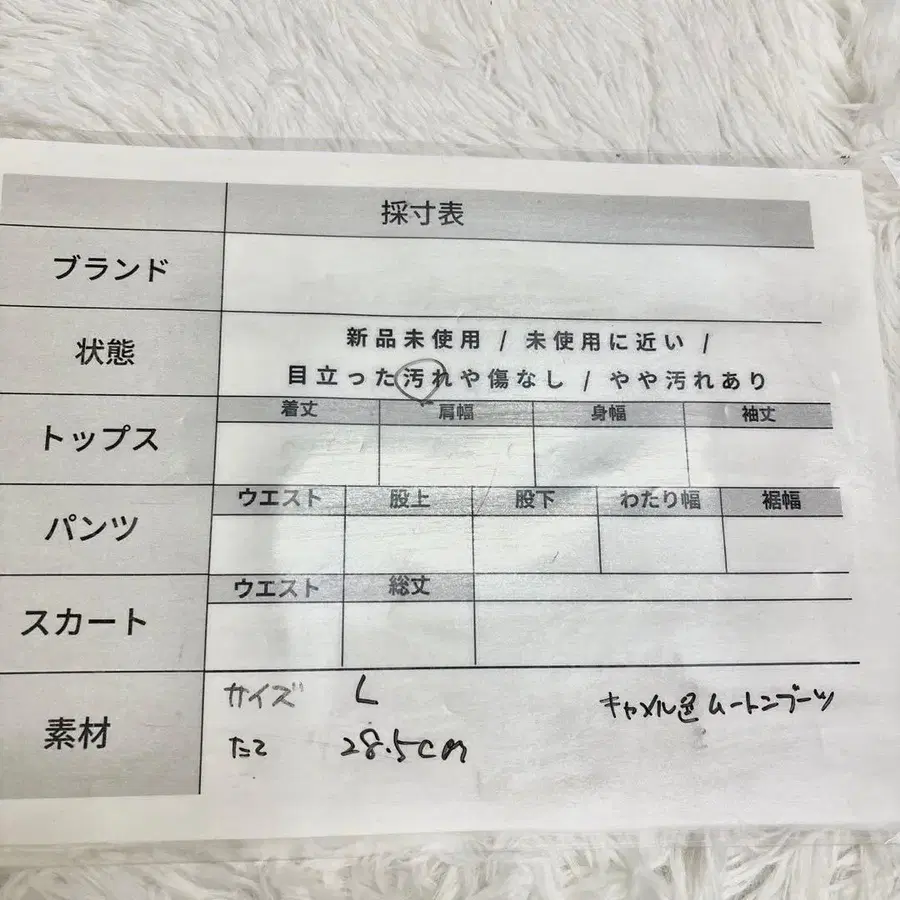 採寸表
ブランド
状態
新品未使用 / 未使用に近い /
目立った汚れや傷なし / やや汚れあり
トップス
着丈 肩幅 身幅 袖丈
パンツ
ウエスト 股上 股下 わたり幅 裾幅
スカート
ウエスト 総丈
素材
サイズ L
たて 28.5cm
キャメル色ムートンブーツ